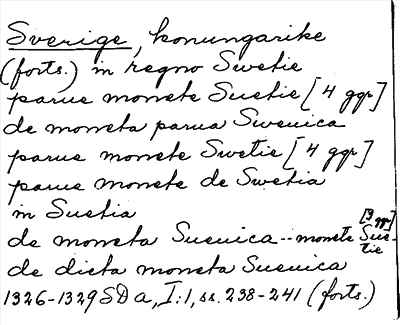 Sverige, konungarike
(forts.) in regno Swetie
parue monete Suetie [4 ggr]
de moneta parua Sweuica
parue monete Swetie [4 ggr]
paruе monete de Swetia
in Suetia
de moneta Sueuica -- monete Sue-tie [3 ggr]
de dicta moneta Sueuica
1326-1329 SD a, I:1, ss. 238-241 (forts.)